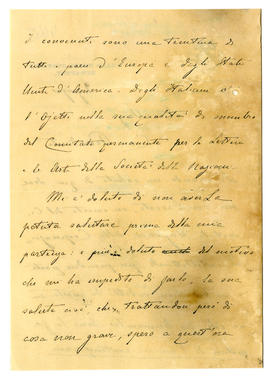 I convenuti sono una trentina di
tutti i paesi d'Europa e degli Stati
Uniti d'America. Degli Italiani c'è
l'Ojetti nella sua qualità di membro
del Comitato permanente per le Lettere
e le Arti della Società delle Nazioni.
Mi è doluto di non averLa
potuta salutare prima della mia
partenza: e più doluto del motivo
che mi ha impedito di farlo, la sua
salute cioè che, trattandosi però di
cosa non grave, spero a quest'ora